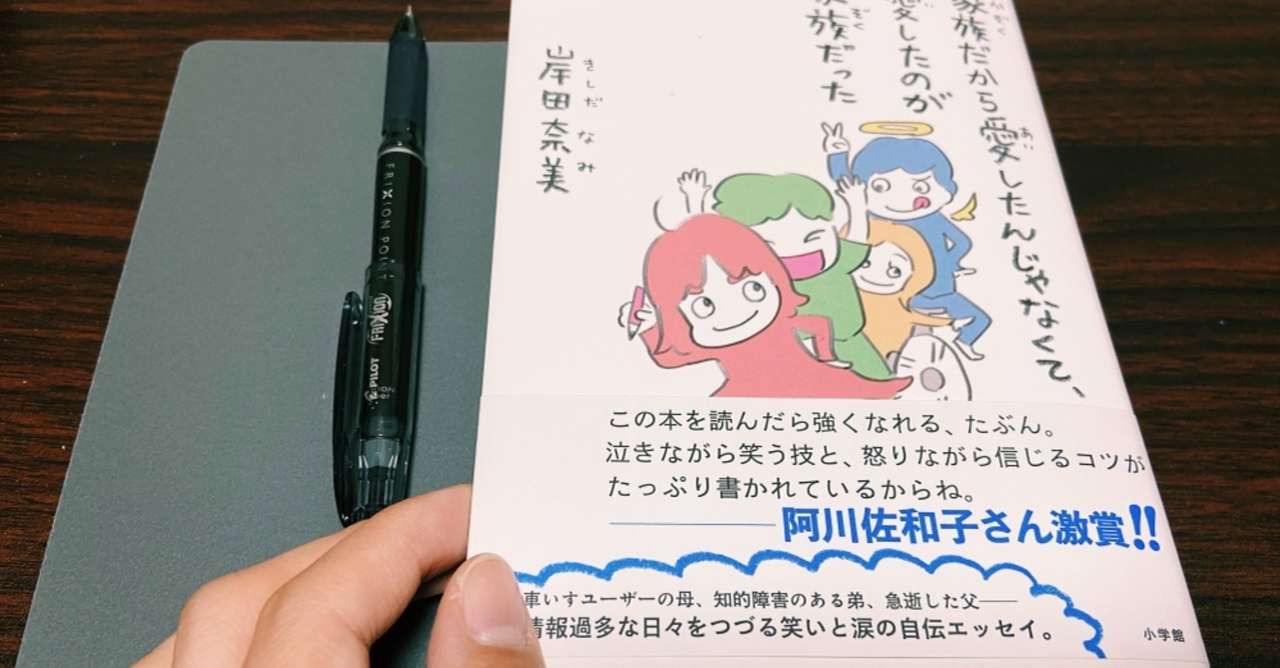 家族だから愛したんじゃなくて、
愛したのが
家族だった
岸田奈美
きしだ なみ
この本を読んだら強くなれる、たぶん。
泣きながら笑う技と、怒りながら信じるコツが
たっぷり書かれているからね。
阿川佐和子さん激賞!!
車いすユーザーの母、知的障害のある弟、急逝した父──
情報過多な日々をつづる笑いと涙の自伝エッセイ。
小学館
FRIXION POINT
FRIXION
PILOT